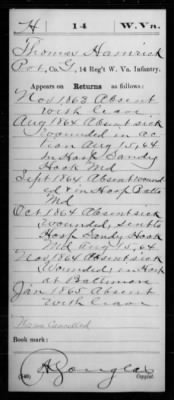 H 14 W. Vn.
Thomas Hamrick
Pvt, Co. G, 14 Reg't W. Va. Infantry.
Appears on Returns as follows:
Nov 1863 Absent
with leave
Aug 1864 Absent sick
Wounded in ac
tion Aug 15, 64
In Hosp Sandy
Hook Md
Sept 1864 Absent wound
ed & in Hosp Balto
Md
Oct 1864 Absent sick
Wounded, sent to
Hosp Sandy Hook
Md Aug 15, 64
Nov 1864 Absent sick
(Wounded) in Hosp
at Baltimore
Jan 1865 Absent
with leave
Name Cancelled
Book mark:
(546) Copyist.